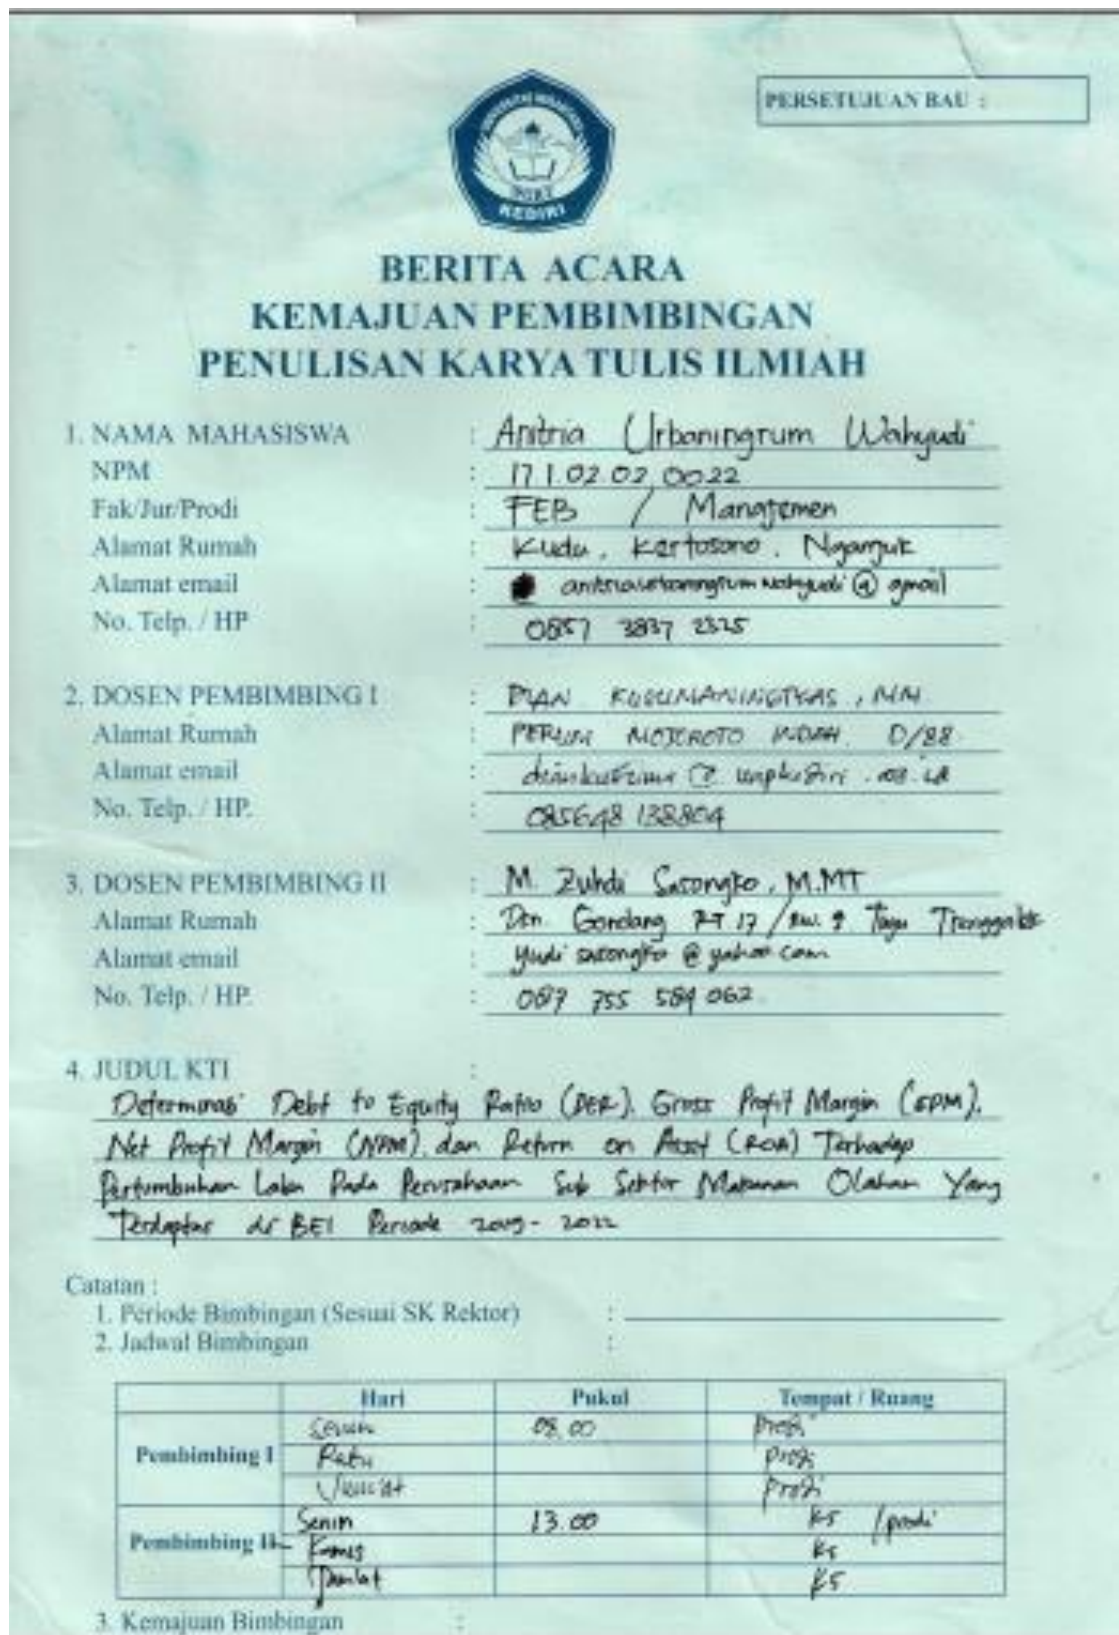 PERSETUJUAN BAU :
UNIVERSITAS NUSANTARA
PGRI
KEDIRI
BERITA ACARA
KEMAJUAN PEMBIMBINGAN
PENULISAN KARYA TULIS ILMIAH
1. NAMA MAHASISWA : Anitria Urbaningrum Wahyudi
NPM : 17.1.02.02.0022
Fak/Jur/Prodi : FEB / Manajemen
Alamat Rumah : Kudu, Kertosono, Nganjuk
Alamat email : anitriaurbaningrumwahyudi@gmail
No. Telp. / HP : 0857 3837 2325
2. DOSEN PEMBIMBING I : DIAN KUSUMANINGTYAS, MM.
Alamat Rumah : PERUM MOJOROTO INDAH D/88
Alamat email :
No. Telp. / HP. : 085648 138804
3. DOSEN PEMBIMBING II : M. Zuhdi Sasongko, M.MT
Alamat Rumah : Dsn. Gondang RT 17 / RW. 9 Tugu Trenggalek
Alamat email : yudi sasongko @ yahoo.com
No. Telp. / HP. : 087 755 584 062
4. JUDUL KTI :
Determinasi Debt to Equity Ratio (DER), Gross Profit Margin (GPM),
Net Profit Margin (NPM), dan Return on Asset (ROA) Terhadap
Pertumbuhan Laba Pada Perusahaan Sub Sektor Makanan Olahan Yang
Terdaftar di BEI Periode 2019-2022
Catatan :
1. Periode Bimbingan (Sesuai SK Rektor) :
2. Jadwal Bimbingan :
Hari Pukul Tempat / Ruang
Senin 08.00 Prodi
Pembimbing I Rabu Prodi
Jum'at Prodi
Senin 13.00 K5 / prodi
Pembimbing II Kamis K5
Jumlat K5
3. Kemajuan Bimbingan :